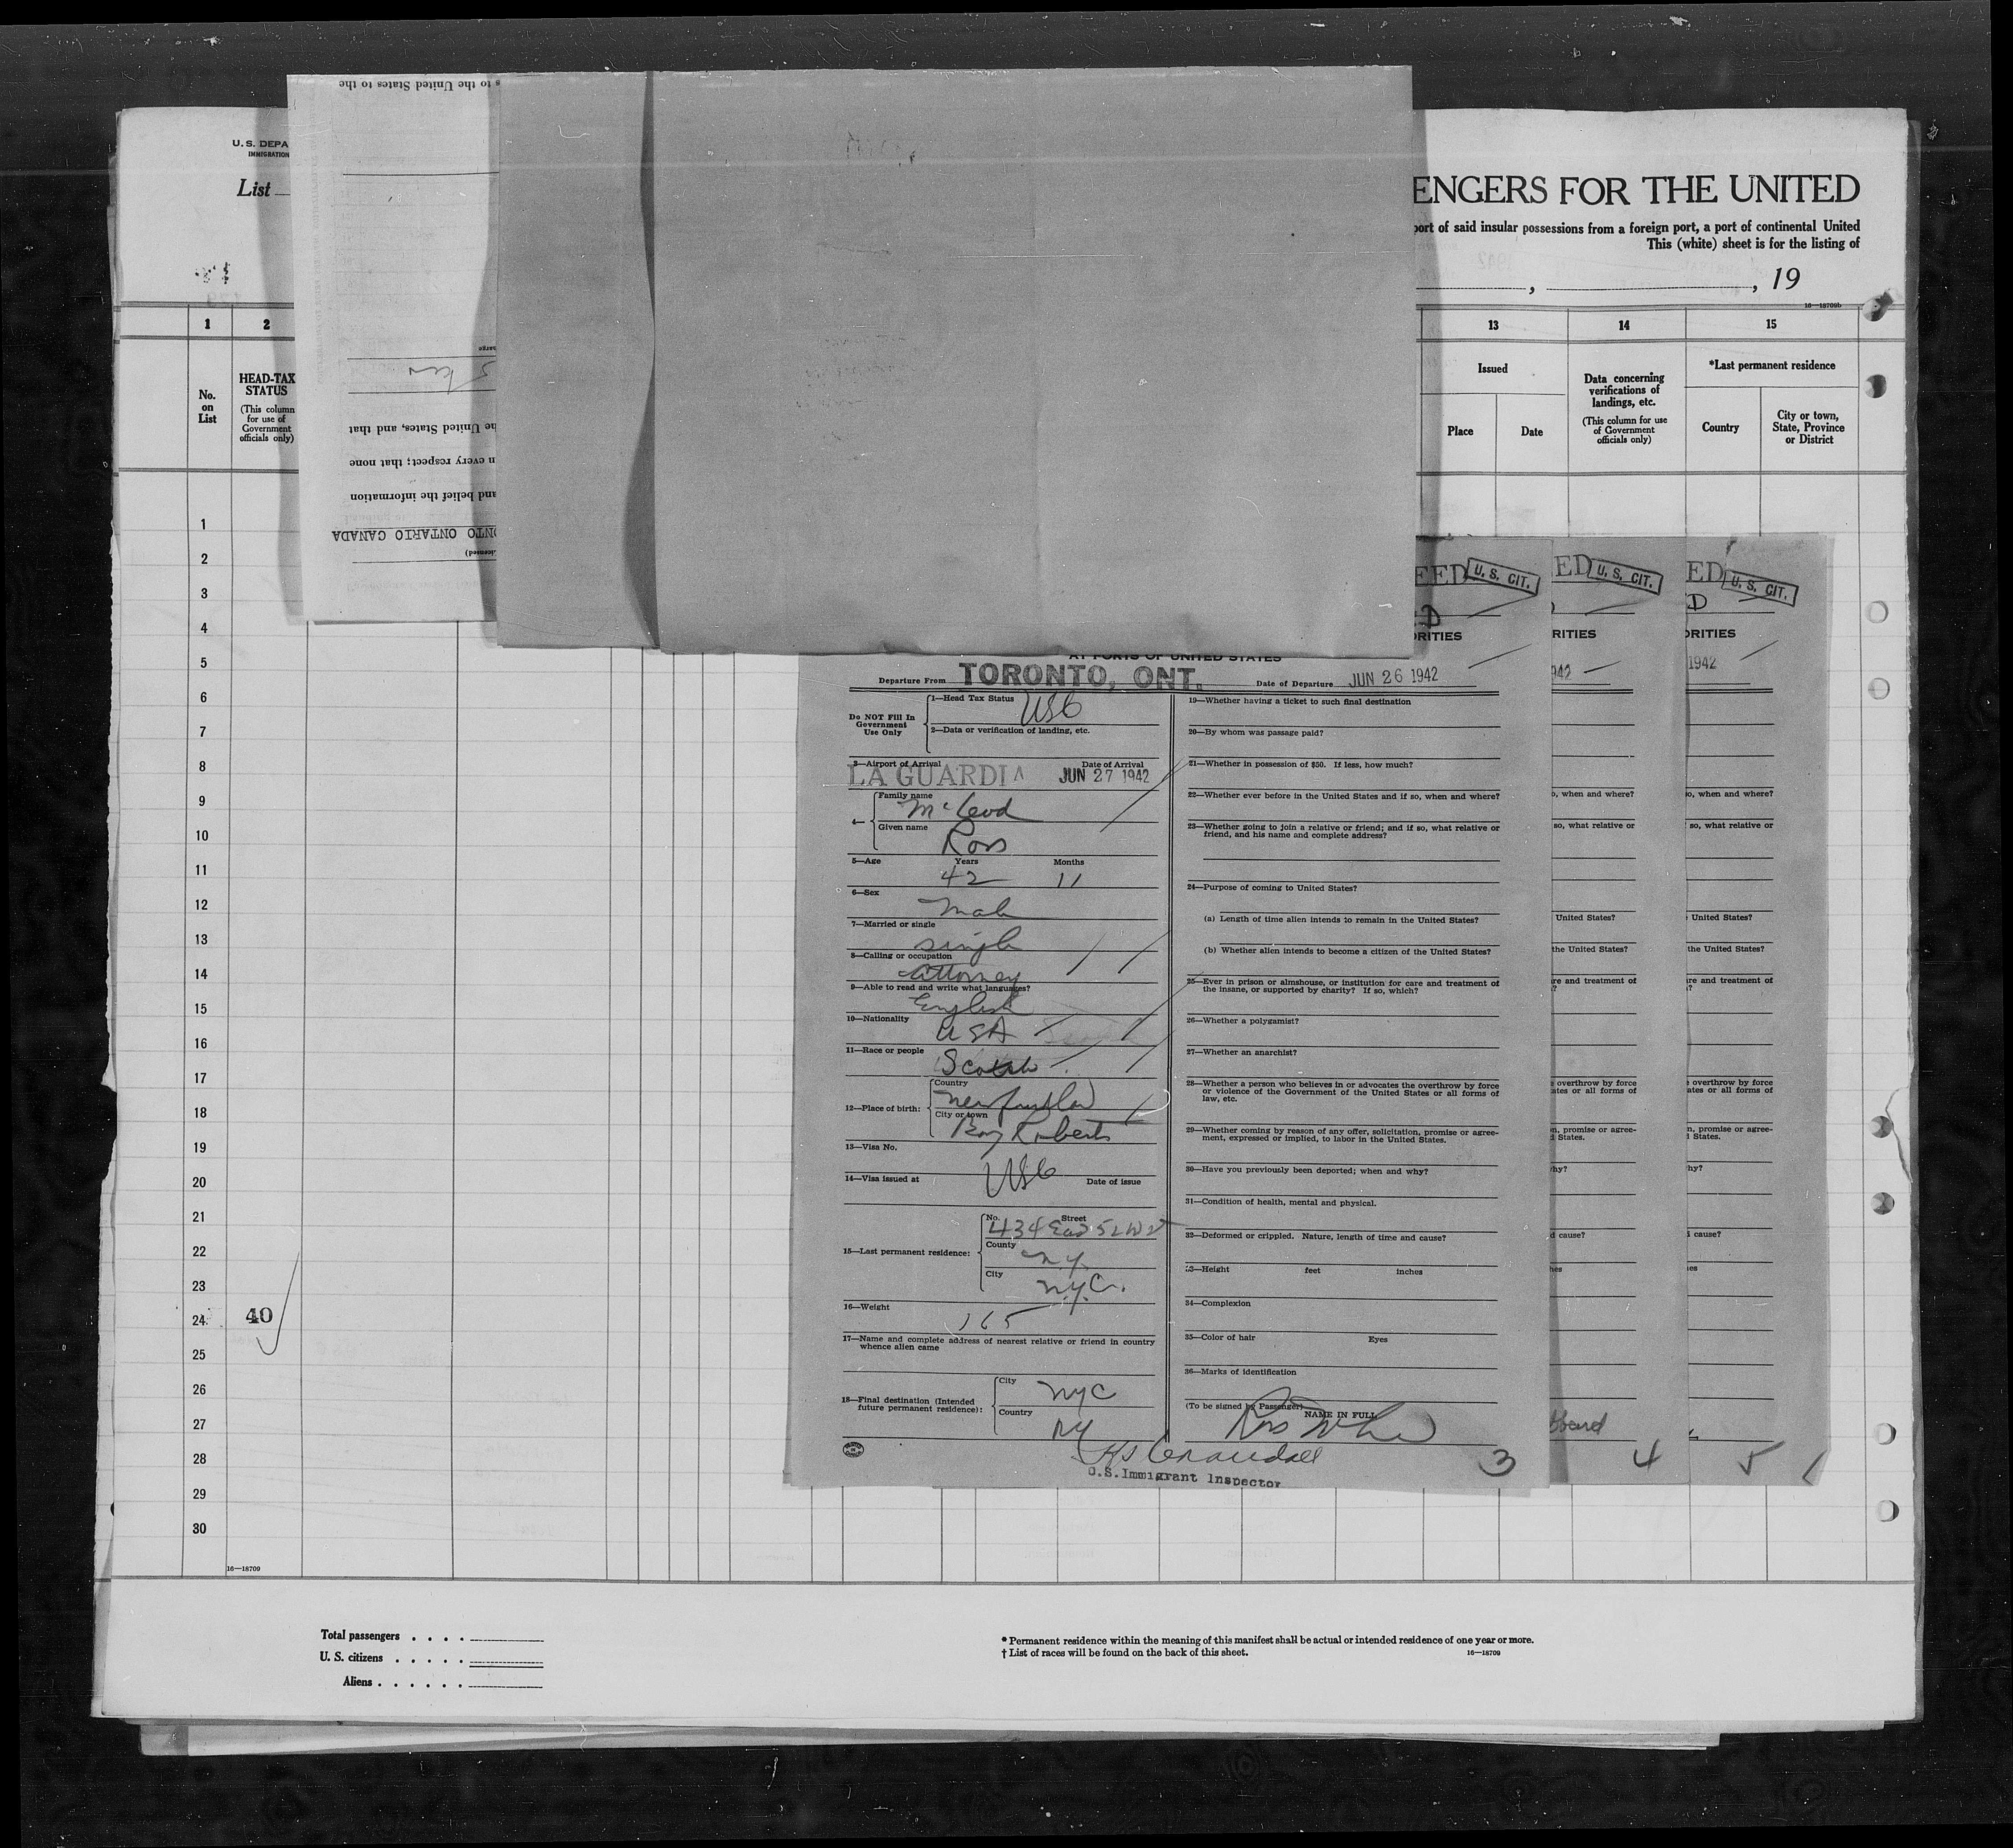 U. S. DEPA
IMMIGRATION
List
s to the United States to the
he United States, and that
n every respect; that none
and belief the information
ONTO ONTARIO CANADA
ENGERS FOR THE UNITED
port of said insular possessions from a foreign port, a port of continental United
This (white) sheet is for the listing of
, , 19
16—18709b
1 2 13 14 15
No. on List
HEAD-TAX STATUS
(This column for use of Government officials only)
Issued
Place Date
Data concerning verifications of landings, etc.
(This column for use of Government officials only)
*Last permanent residence
Country
City or town, State, Province or District
1
2
3
4
5
6
7
8
9
10
11
12
13
14
15
16
17
18
19
20
21
22
23
24
40
25
26
27
28
29
30
16—18709
AT PORTS OF UNITED STATES
Departure From TORONTO, ONT. Date of Departure JUN 26 1942
Do NOT Fill In Government Use Only
1—Head Tax Status USC
2—Data or verification of landing, etc.
3—Airport of Arrival Date of Arrival
LA GUARDIA JUN 27 1942
4—
Family name
McLeod
Given name
Ross
5—Age Years Months
42 11
6—Sex
Male
7—Married or single
Single
8—Calling or occupation
Attorney
9—Able to read and write what languages?
English
10—Nationality
USA
11—Race or people
Scotch
12—Place of birth:
Country
Newfoundland
City or town
Bay Roberts
13—Visa No.
USC
14—Visa issued at Date of issue
15—Last permanent residence:
No. Street
434 East 52
County
N.Y.
City
N.Y.C.
16—Weight
165
17—Name and complete address of nearest relative or friend in country
whence alien came
18—Final destination (Intended
future permanent residence):
City
NYC
Country
NY
19—Whether having a ticket to such final destination
20—By whom was passage paid?
21—Whether in possession of $50. If less, how much?
22—Whether ever before in the United States and if so, when and where?
23—Whether going to join a relative or friend; and if so, what relative or
friend, and his name and complete address?
24—Purpose of coming to United States?
(a) Length of time alien intends to remain in the United States?
(b) Whether alien intends to become a citizen of the United States?
25—Ever in prison or almshouse, or institution for care and treatment of
the insane, or supported by charity? If so, which?
26—Whether a polygamist?
27—Whether an anarchist?
28—Whether a person who believes in or advocates the overthrow by force
or violence of the Government of the United States or all forms of
law, etc.
29—Whether coming by reason of any offer, solicitation, promise or agree-
ment, expressed or implied, to labor in the United States.
30—Have you previously been deported; when and why?
31—Condition of health, mental and physical.
32—Deformed or crippled. Nature, length of time and cause?
33—Height feet inches
34—Complexion
35—Color of hair Eyes
36—Marks of identification
(To be signed by Passenger) NAME IN FULL
Crandall
U.S. Immigrant Inspector
3
EED U. S. CIT.
ORITIES
ED U. S. CIT.
RITIES
942
so, what relative or
United States?
the United States?
re and treatment of
overthrow by force
ates or all forms of
n, promise or agree-
d States.
hy?
d cause?
hes
4
ED U. S. CIT.
D
ORITIES
1942
o, when and where?
so, what relative or
United States?
the United States?
re and treatment of
overthrow by force
ates or all forms of
n, promise or agree-
d States.
hy?
cause?
es
5
Total passengers
U. S. citizens
Aliens
* Permanent residence within the meaning of this manifest shall be actual or intended residence of one year or more.
† List of races will be found on the back of this sheet.
16—18709